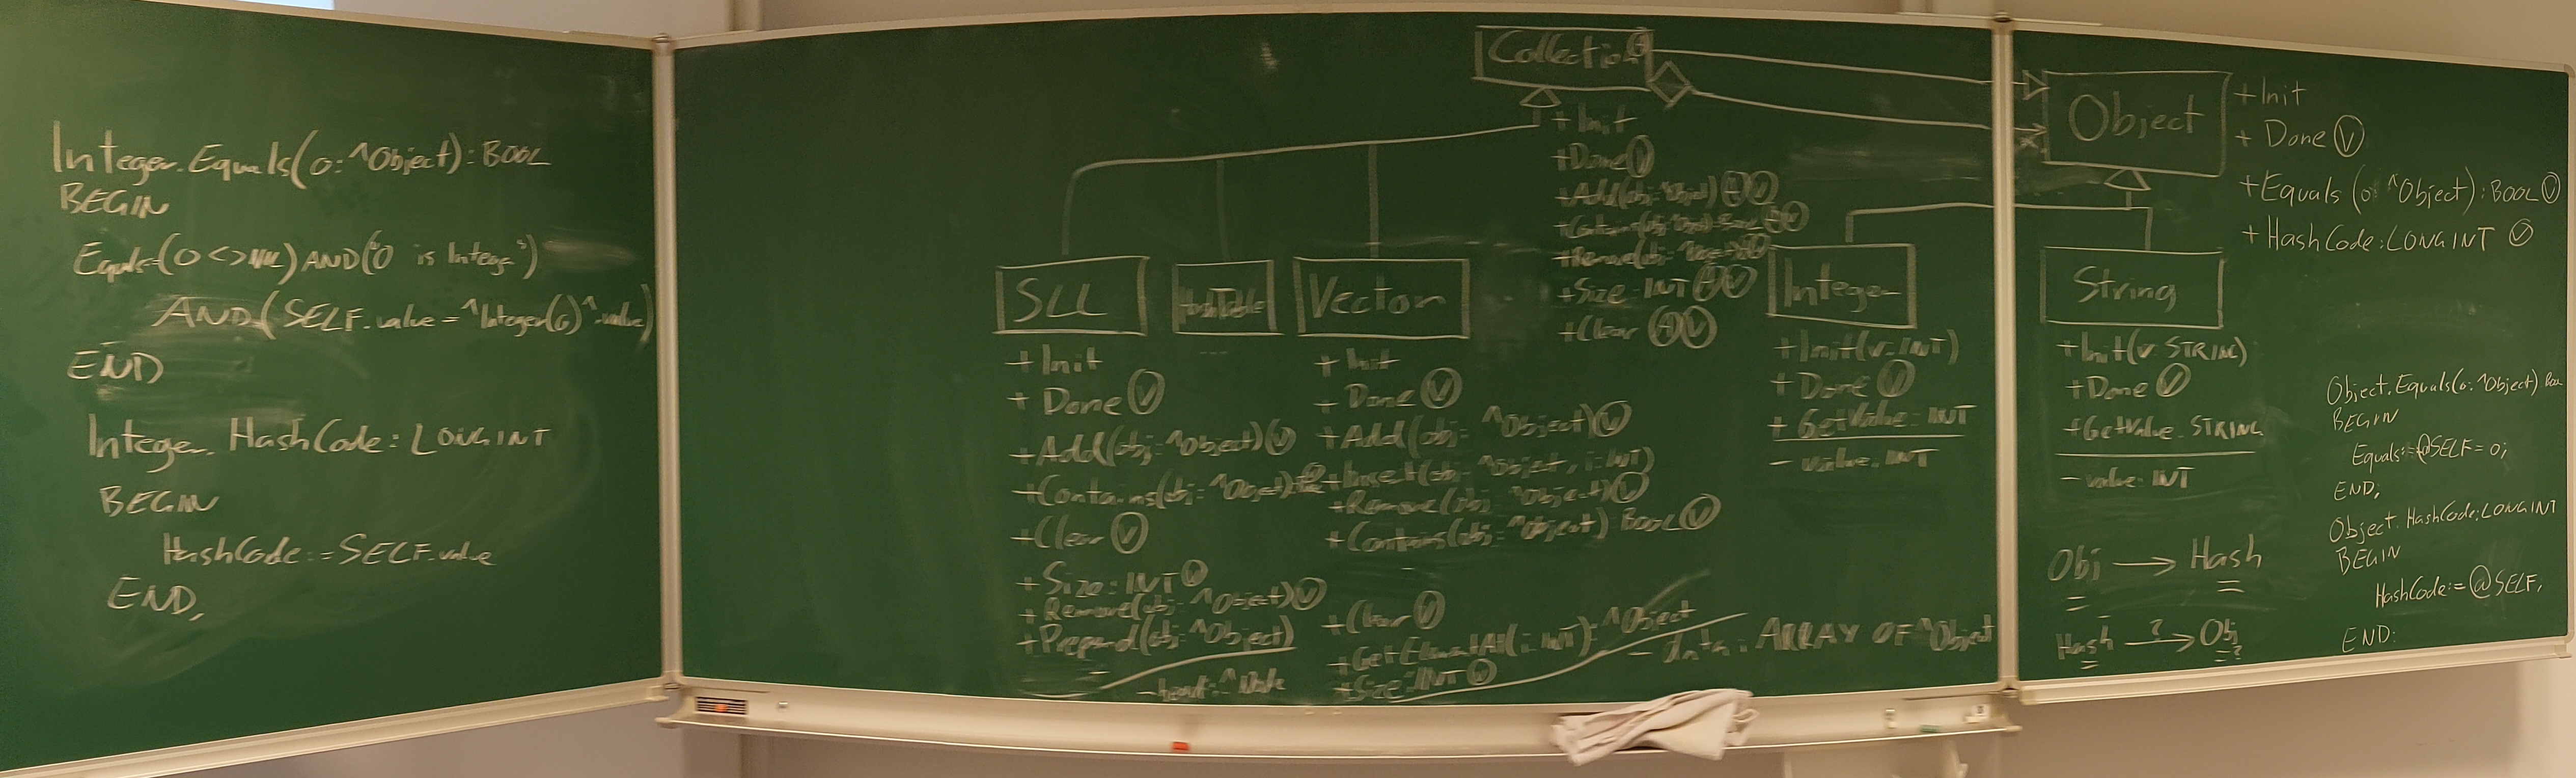 Integer.Equals(o: ^Object): BOOL
BEGIN
Equals:=(O <> NIL) AND ("O is Integer")
AND (SELF.value = ^Integer(O)^.value)
END
Integer.HashCode: LONGINT
BEGIN
HashCode := SELF.value
END;
Collection
+ Init
+ Done (V)
+ Add(obj: ^Object) (A)(V)
+ Contains(obj: ^Object): BOOL (A)(V)
+ Remove(obj: ^Object) (A)(V)
+ Size: INT (A)(V)
+ Clear (A)(V)
SLL
+ Init
+ Done (V)
+ Add(obj: ^Object) (V)
+ Contains(obj: ^Object):
+ Clear (V)
+ Size: INT (V)
+ Remove(obj: ^Object) (V)
+ Prepend(obj: ^Object)
- head: ^Node
HashTable
Vector
+ Init
+ Done (V)
+ Add(obj: ^Object) (V)
+ Insert(obj: ^Object, i: INT)
+ Remove(obj: ^Object) (V)
+ Contains(obj: ^Object): BOOL (V)
+ Clear (V)
+ GetElementAt(i: INT): ^Object
+ Size: INT (V)
- data: ARRAY OF ^Object
Integer
+ Init(v: INT)
+ Done (V)
+ GetValue: INT
- value: INT
Object
+ Init
+ Done (V)
+ Equals (o: ^Object): BOOL (V)
+ HashCode: LONGINT (V)
String
+ Init(v: STRING)
+ Done (V)
+ GetValue: STRING
- value: INT
Obj → Hash
Hash ?→ Obj ?
Object.Equals(o: ^Object)
BEGIN
Equals:=@SELF = o;
END;
Object.HashCode: LONGINT
BEGIN
HashCode:= @SELF;
END;